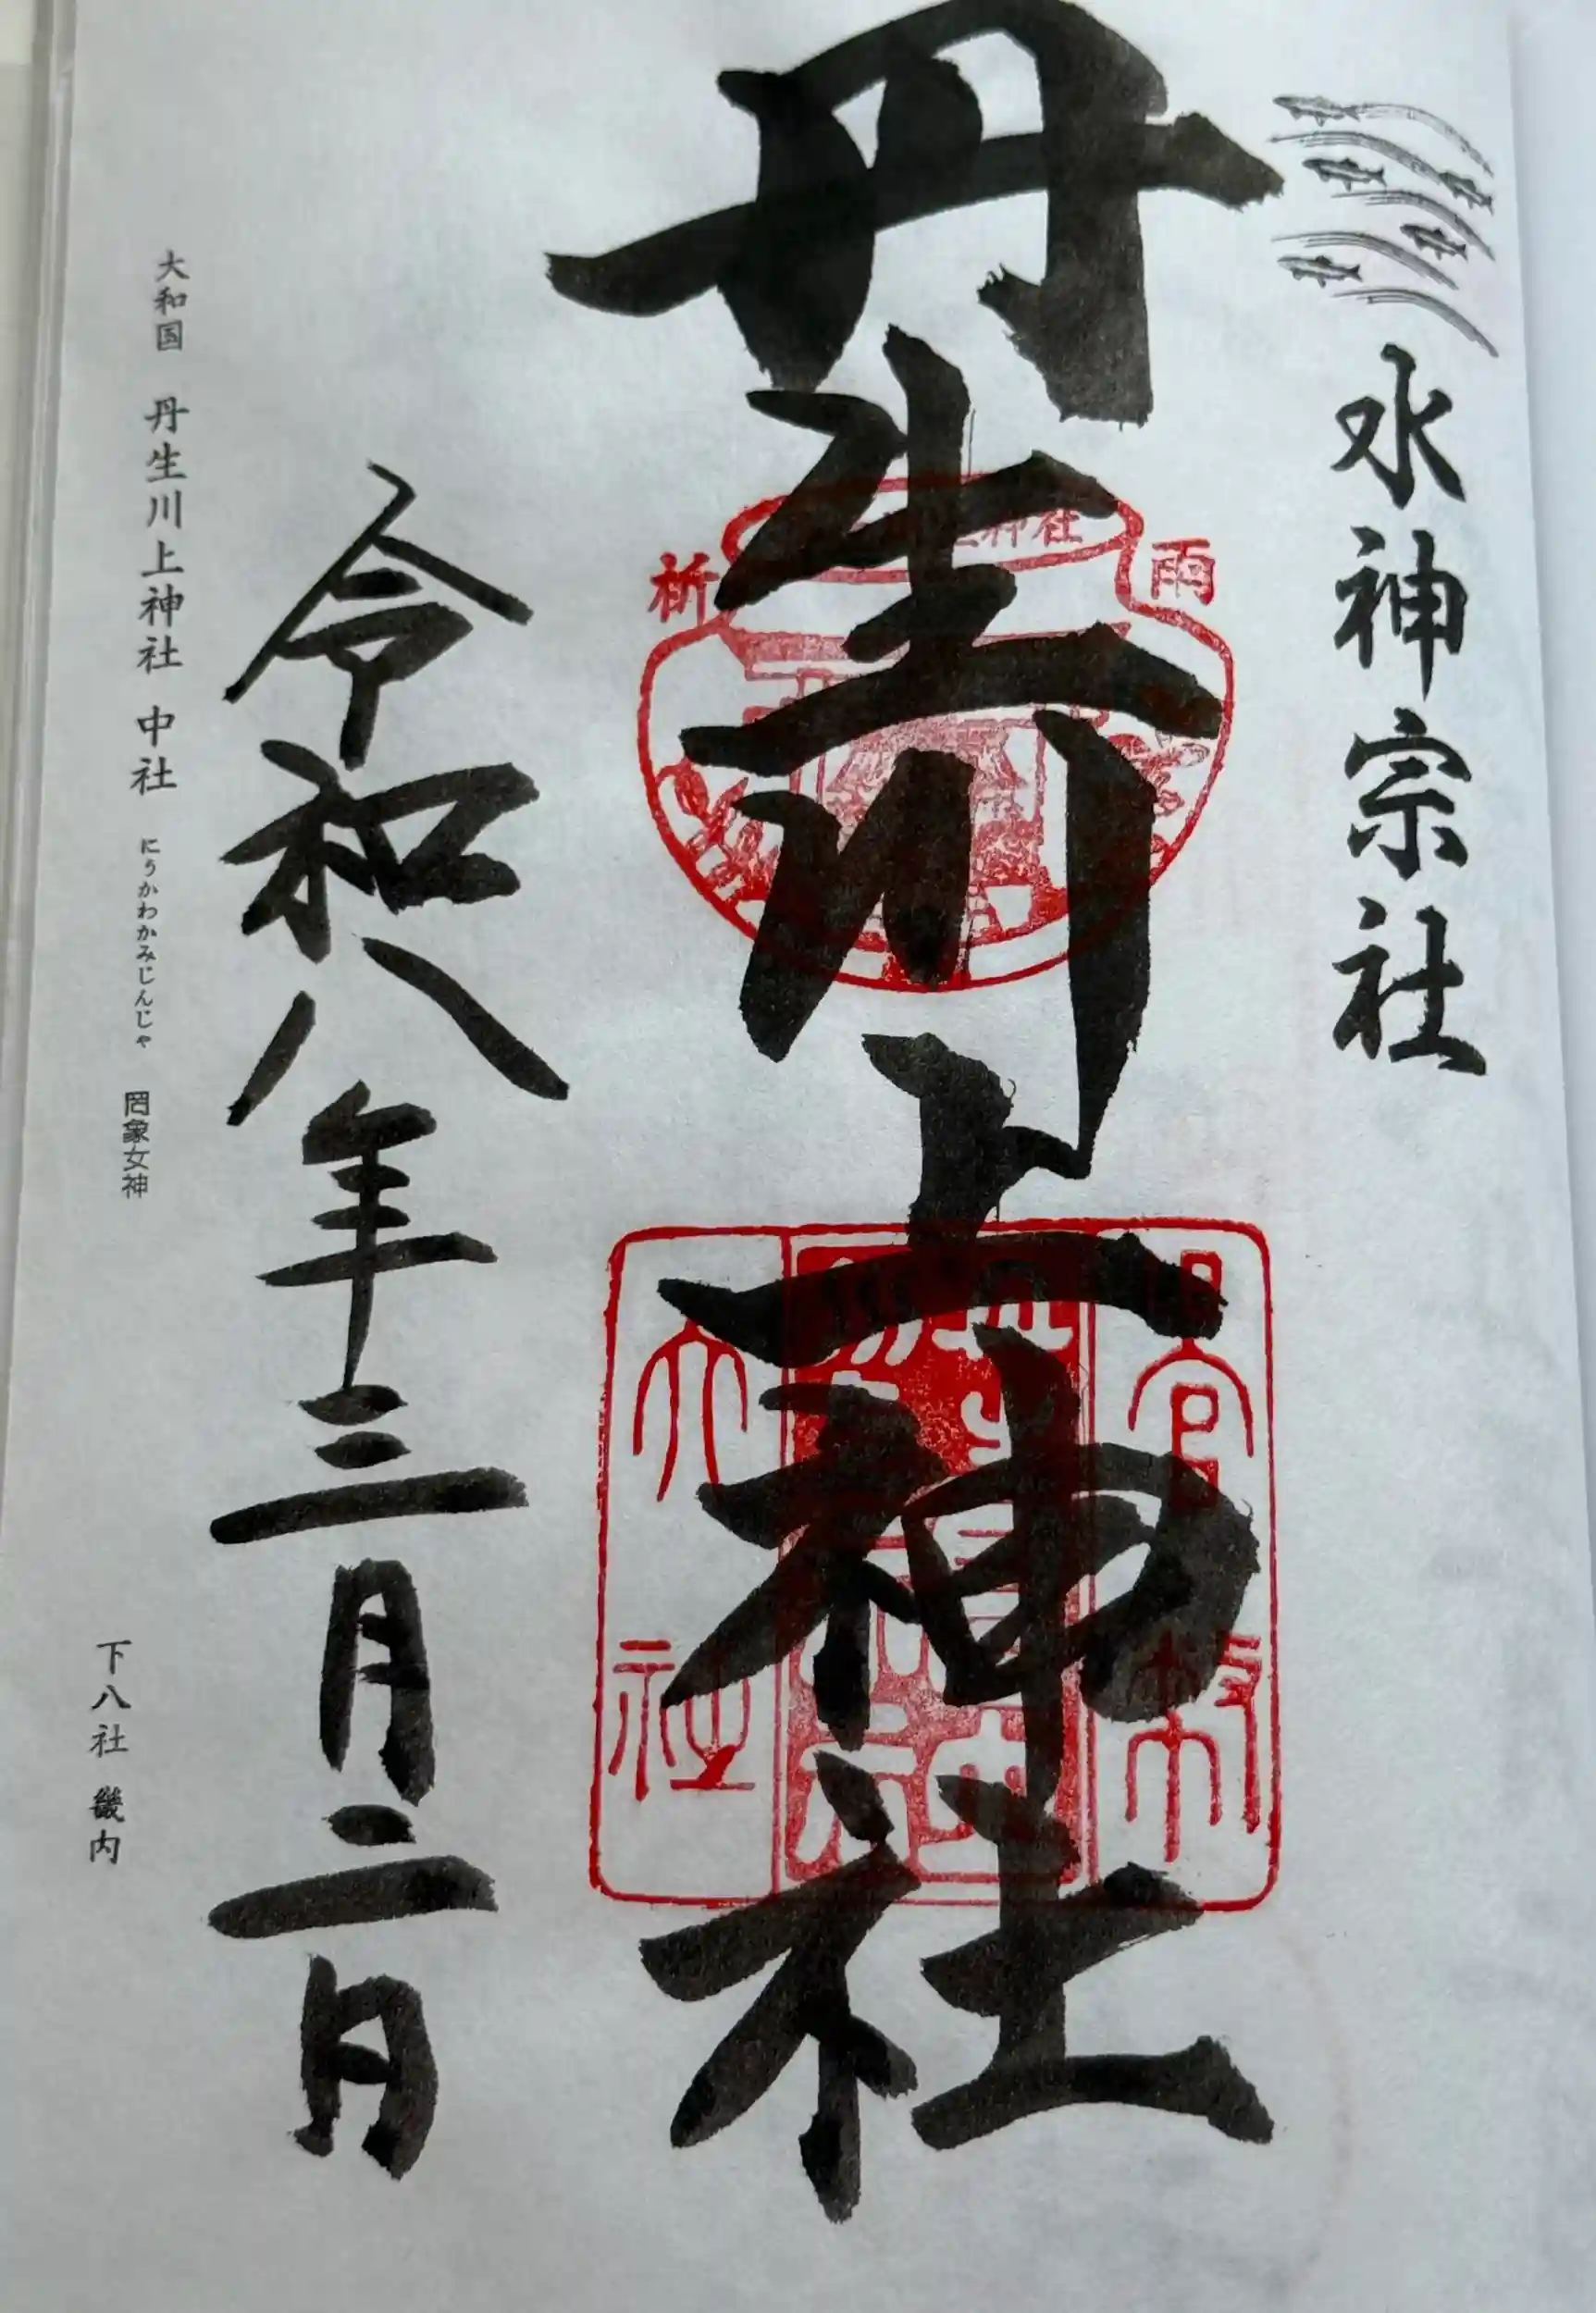 水神宗社
丹生川上神社
雨
祈
神社
官幣
大社
令和八年三月二日
大和国 丹生川上神社 中社 にうかわかみじんじゃ 罔象女神
下八社 畿内